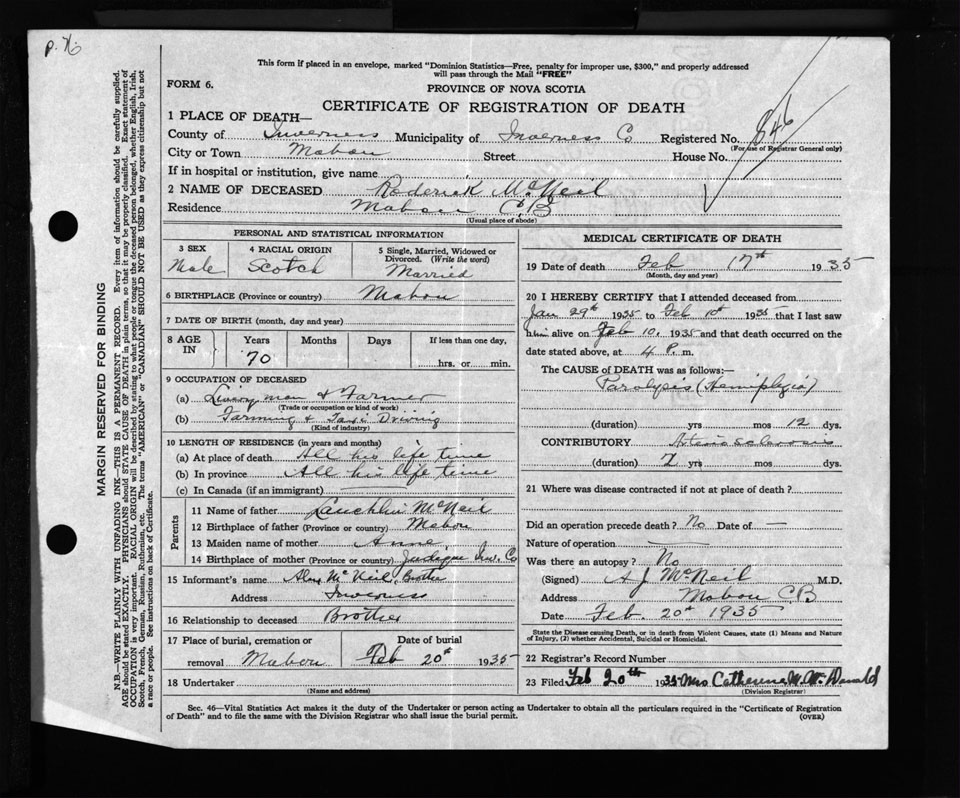 P. 76
This form if placed in an envelope, marked "Dominion Statistics—Free, penalty for improper use, $300," and properly addressed
will pass through the Mail "FREE"
FORM 6.
PROVINCE OF NOVA SCOTIA
CERTIFICATE OF REGISTRATION OF DEATH
1 PLACE OF DEATH—
County of Inverness Municipality of Inverness Co Registered No. 846
(For use of Registrar General only)
City or Town Mabou Street House No.
If in hospital or institution, give name
2 NAME OF DECEASED Roderick McNeil
Residence Mabou C.B
(Usual place of abode)
PERSONAL AND STATISTICAL INFORMATION
3 SEX 4 RACIAL ORIGIN 5 Single, Married, Widowed or
Divorced. (Write the word)
Male Scotch Married
6 BIRTHPLACE (Province or country) Mabou
7 DATE OF BIRTH (month, day and year)
8 AGE IN Years Months Days If less than one day,
70 hrs. or min.
9 OCCUPATION OF DECEASED
(a) Liveryman & Farmer
(Trade or occupation or kind of work)
(b) Farming & Taxi Driving
(Kind of industry)
10 LENGTH OF RESIDENCE (in years and months)
(a) At place of death All his life time
(b) In province All his life time
(c) In Canada (if an immigrant)
Parents
11 Name of father Lauchlin McNeil
12 Birthplace of father (Province or country) Mabou
13 Maiden name of mother Anne
14 Birthplace of mother (Province or country) Judique Inv. Co
15 Informant's name Alex McNeil, Brother
Address Inverness
16 Relationship to deceased Brother
17 Place of burial, cremation or Date of burial
removal Mabou Feb 20th 1935
18 Undertaker
(Name and address)
MEDICAL CERTIFICATE OF DEATH
19 Date of death Feb 17th 1935
(Month, day and year)
20 I HEREBY CERTIFY that I attended deceased from
Jan 29th 1935 to Feb 10th 1935 that I last saw
him alive on Feb 10, 1935 and that death occurred on
the date stated above, at 4 P. m.
The CAUSE OF DEATH was as follows:—
Paralysis (Hemiplegia)
(duration) yrs mos 12 dys.
CONTRIBUTORY Aterio sclerosis
(duration) 2 yrs mos dys.
21 Where was disease contracted if not at place of death?
Did an operation precede death? No Date of —
Nature of operation —
Was there an autopsy? No
(Signed) A J McNeil M.D.
Address Mabou CB
Date Feb. 20th 1935
State the Disease causing Death, or in death from Violent Causes, state (1) Means and Nature
of Injury, (2) whether Accidental, Suicidal or Homicidal.
22 Registrar's Record Number
23 Filed Feb 20th 1935 Mrs Catherine McDonald
(Division Registrar)
Sec. 46—Vital Statistics Act makes it the duty of the Undertaker or person acting as Undertaker to obtain all the particulars required in the "Certificate of Registration
of Death" and to file the same with the Division Registrar who shall issue the burial permit.
(OVER)
MARGIN RESERVED FOR BINDING
N.B.—WRITE PLAINLY WITH UNFADING INK—THIS IS A PERMANENT RECORD. Every item of information should be carefully supplied.
AGE should be stated EXACTLY. PHYSICIANS should STATE CAUSE OF DEATH in plain terms, so that it may be properly classified. Exact statement of
OCCUPATION is very important. RACIAL ORIGIN will be described by stating to what people or tongue the deceased person belonged, whether English, Irish,
Scotch, French, German, Russian, Ruthenian, etc. The terms "AMERICAN" or "CANADIAN" SHOULD NOT BE USED as they express citizenship but not
a race or people. See instructions on back of Certificate.